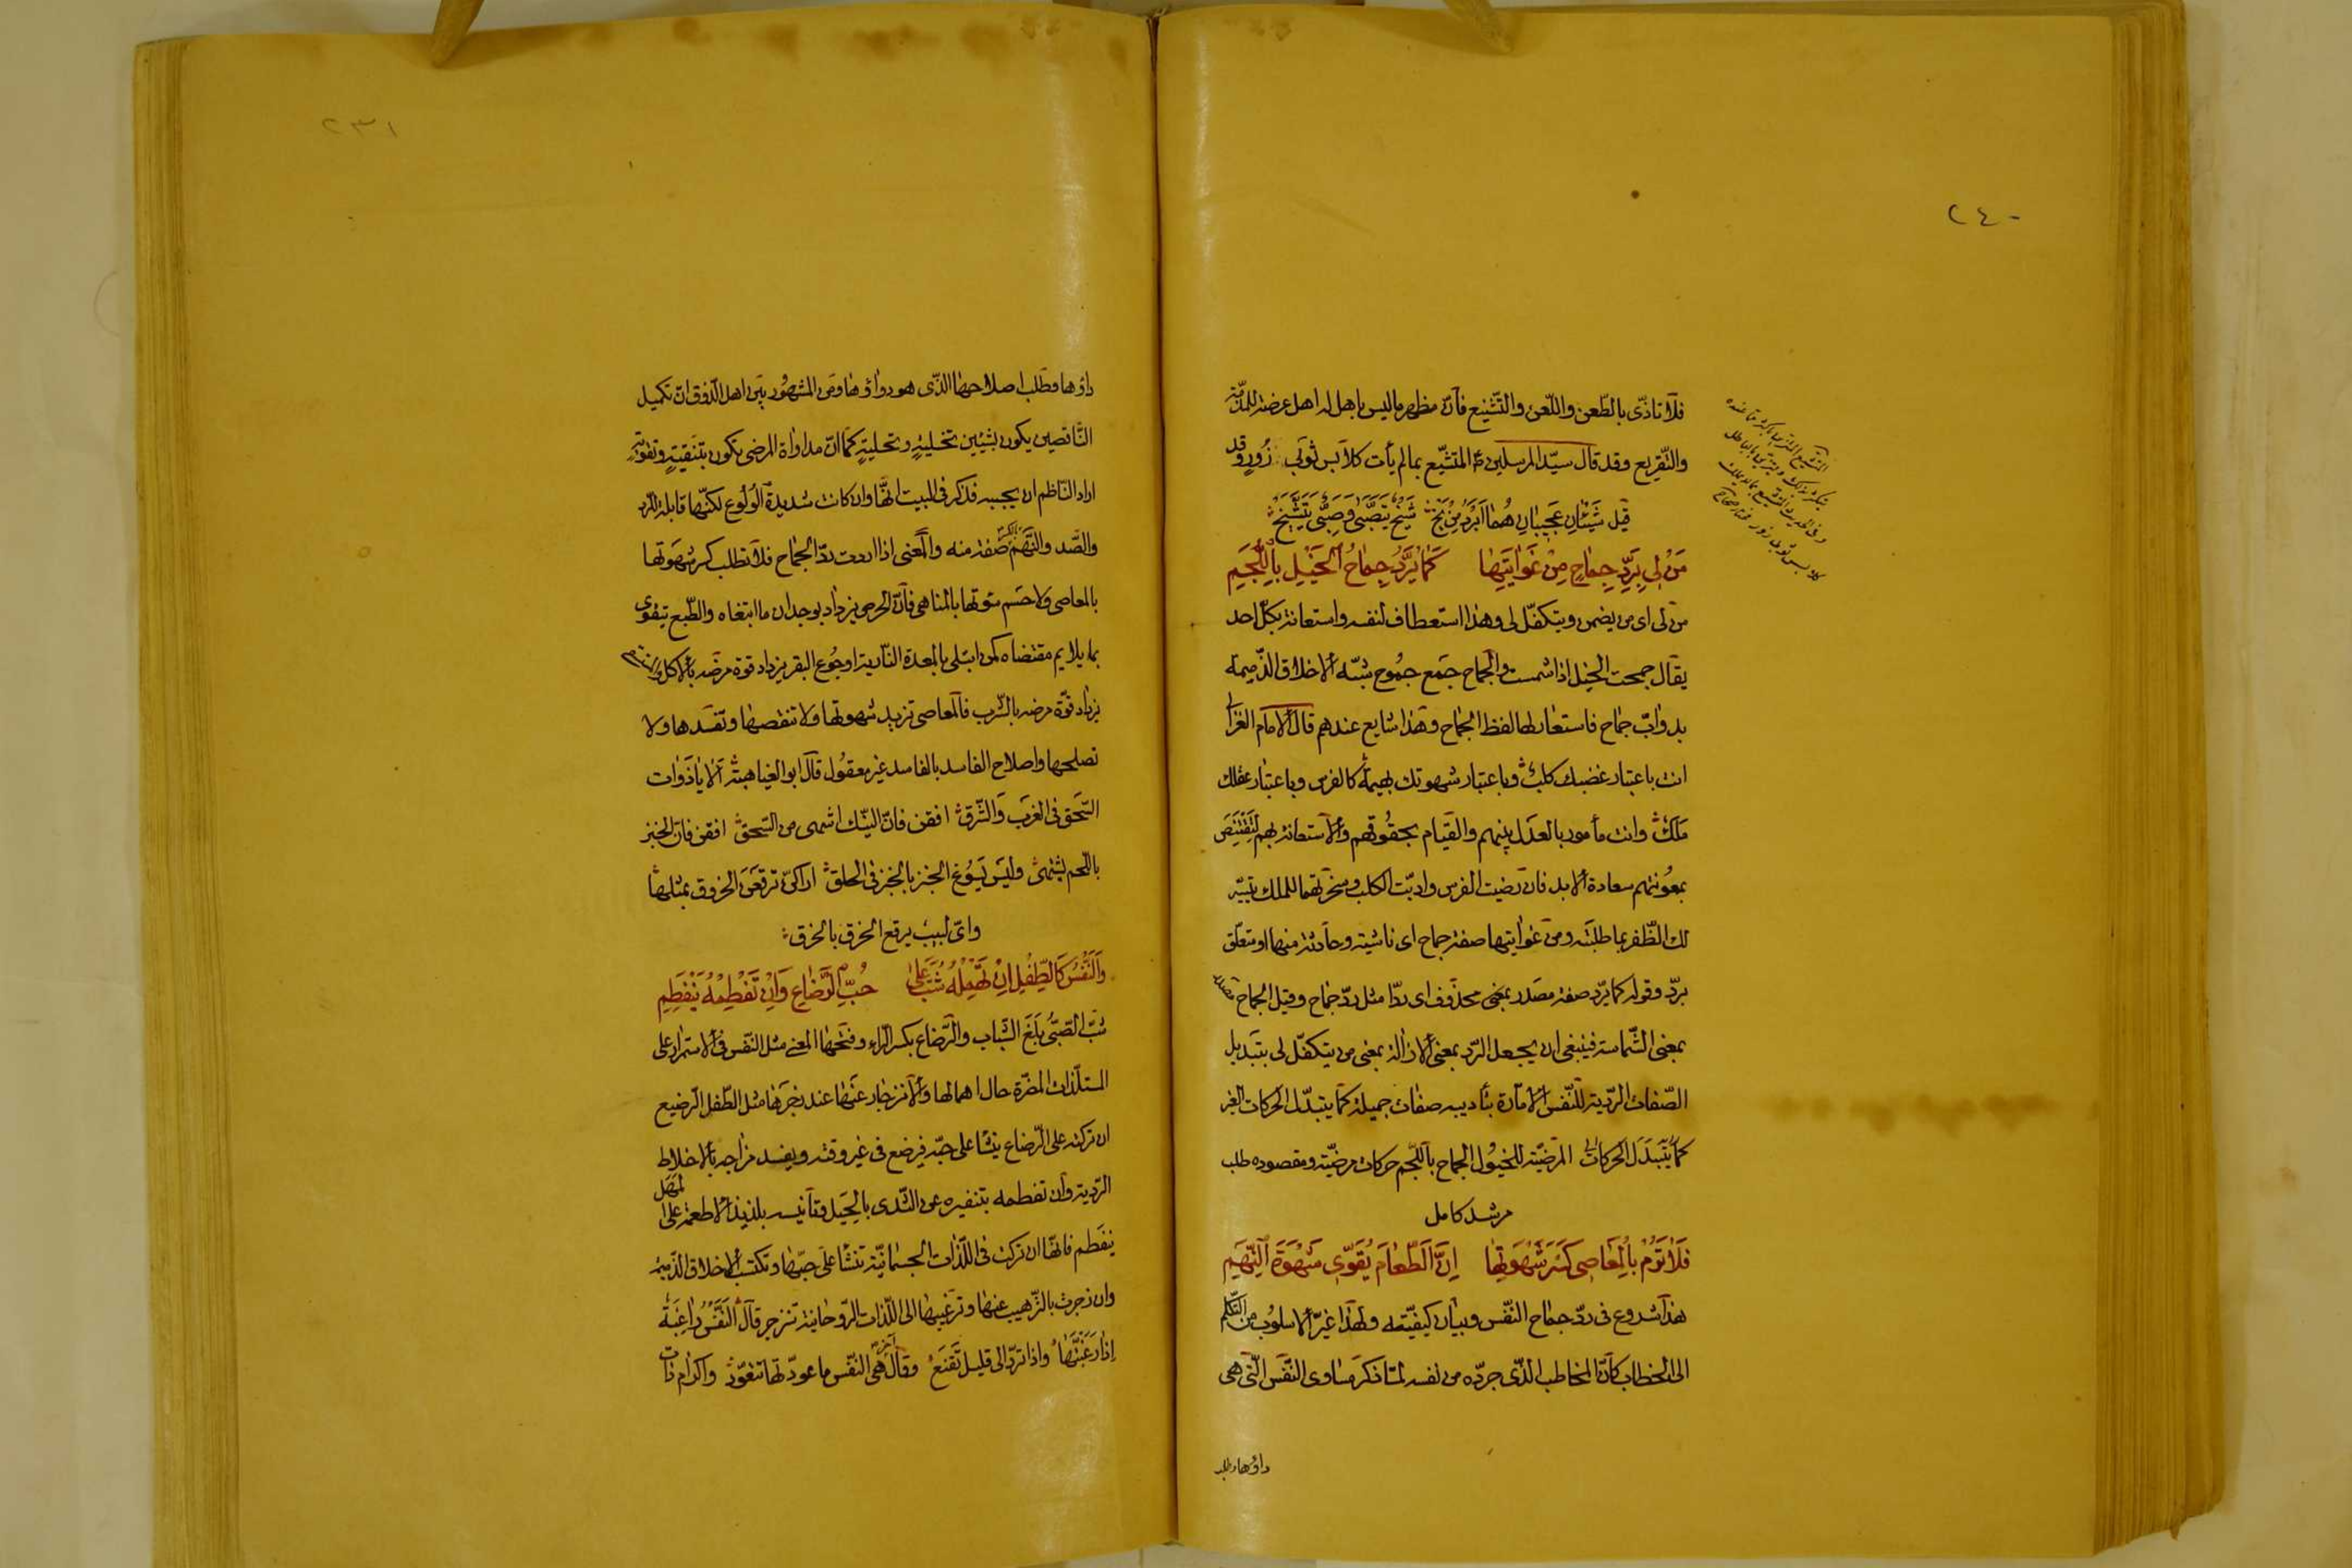 ٢٤٠
فلا تاذّى بالطّعن واللّعن والتّشنيع فانّ مظهر ما ليس باهل له اهل عرضة للمذمّة
والتّقريع وقد قال سيّد المرسلين المتشبّع بمالم يأت كلابس ثوبى زُورٍ وقد
قيل شَيْئانِ عَجيبانِ هُمٰا اَبْرَدُ مِنْ يَخْ شَيْخٌ يَتَصَبّٰى وَصَبِىٌّ يَتَشَيَّخ
مَنْ لِى بِرَدِّ جِمٰاحٍ مِنْ غَوٰايَتِهٰا كَمٰا يُرَدُّ جِمٰاحُ الْخَيْلِ بِاللُّجُمِ
من لى اى من يضمن ويتكفّل لى وهذا استعطاف لنفسه واستعانة بكلّ احد
يقال جمحت الخيل اذا شمست والجماح جمع جموح شبّه الاخلاق الذّميمة
بدوابّ جماح فاستعار لها لفظ الجماح وهذا شايع عندهم قال الامام الغزالى
انت باعتبار غضبك كلبٌ وباعتبار شهوتك بهيمة كالفرس وباعتبار عقلك
ملكٌ وانت مأمور بالعدل بينهم والقيام بحقوقهم والاستعانة بهم لتقتنص
بمعونتهم سعادة الابد فان رضيت الفرس وادّبت الكلب وسخرتهما للملك تيسّر
لك الظّفر بما طلبته ومن غوايتها صفة جماح اى ناشية وحادثة منها او متعلّق
بردّ وقوله كما يردّ صفة مصدر بمعنى محذوف اى ردّا مثل ردّ جماح وقيل الجماح مصدر
بمعنى الشّماسة فينبغى ان يجعل الردّ بمعنى الازالة بمعنى من يتكفّل لى بتبديل
الصّفات الرّدية للنّفس الامّارة بتأديبه صفات جميلة كما يتبدّل الحركات الغير
كما يتبدّل الحركات المرضيّة للخيول الجماح باللّجم حركات مرضيّة ومقصوده طلب
مرشد كامل
فَلٰا تَرُمْ بِالْمَعٰاصِى كَسْرَ شَهْوَتِهٰا اِنَّ الطَّعٰامَ يُقَوِّى شَهْوَةَ النَّهِمِ
هذا شروع فى ردّ جماح النّفس وبيان كيفيّته ولهذا غيّر الاسلوب من التّكلم
الى الخطاب كانّ المخاطب الّذى جرّده من نفسه لمّا ذكر مساوى النّفس الّتى هى
داؤها وطلب
٢٣١
داؤها وطلب اصلاحها الّذى هو دواؤها ومن المشهور بين اهل الذّوق انّ تكميل
النّاقصين يكون بشيئين تخليةٍ وتحليةٍ كما انّ مداواة المرضى تكون بتنقيةٍ وتقويةٍ
اراد النّاظم ان يجيبه فذكر فى البيت انّها وان كانت شديدة الولوع لكنّها قابلة للرّد
والصّد والنّهم بالكسر صفة منه والمعنى اذا اردت ردّ الجماح فلا تطلب كسر شهوتها
بالمعاصى ولا حسم سوتها بالمناهى فانّ الحرص يزداد بوجدان ما ابتغاه والطّبع يتقوى
بما يلايم مقتضاه كمن ابتلى بالمعدة النّارية او جوع البقر يزداد قوة مرضه بالاكل
يزداد قوّة مرضه بالشّرب فالمعاصى تزيد شهوتها ولا تنقصها وتفسدها ولا
تصلحها واصلاح الفاسد بالفاسد غير معقول قال ابو الغياهبة الا يا ذوات
السّحق فى الغرب والشّرق افقن فانّ النّيك اشهى من السّحق افقن فانّ الخبز
باللّحم يشتهى وليس يسوغ الخبز بالخبز فى الحلق اراكنّ ترقعن الخروق بمثلها
واىّ لبيب يرقع الخرق بالخرق
وَالنَّفْسُ كَالطِّفْلِ اِنْ تُهْمِلْهُ شَبَّ عَلٰى حُبِّ الرَّضٰاعِ وَاِنْ تَفْطِمْهُ يَنْفَطِمِ
شبّ الصّبىّ بلغ الشّباب والرّضاع بكسر الرّاء وفتحها المعنى مثل النّفس فى الاستمرار على
المستلذّات المضرّة حال اهمالها والانزجار عنها عند زجرها مثل الطّفل الرّضيع
ان تركته على الرّضاع ينشا على حبّه فيرضع فى غير وقته ويفسد مزاجه بالاخلاط
الرّدية وان تفطمه بتنفيره عن الثّدى بالحيل وتأنيسه بلذيذ الاطعمة على المهل
ينفطم فانّها ان تركت فى اللّذّات الجسمانيّة تنشا على حبّها وتكتسب الاخلاق الذّميمة
وان زجرت بالتّرهيب عنها وترغيبها الى اللّذات الرّوحانية تنزجر قال النَّفْسُ رٰاغِبَةٌ
اِذٰا رَغَّبْتَهٰا واذا تردّ الى قليل تَقْنَعُ وقال آخر هى النّفس ما عودّتها تتعوّد واكرام ذات